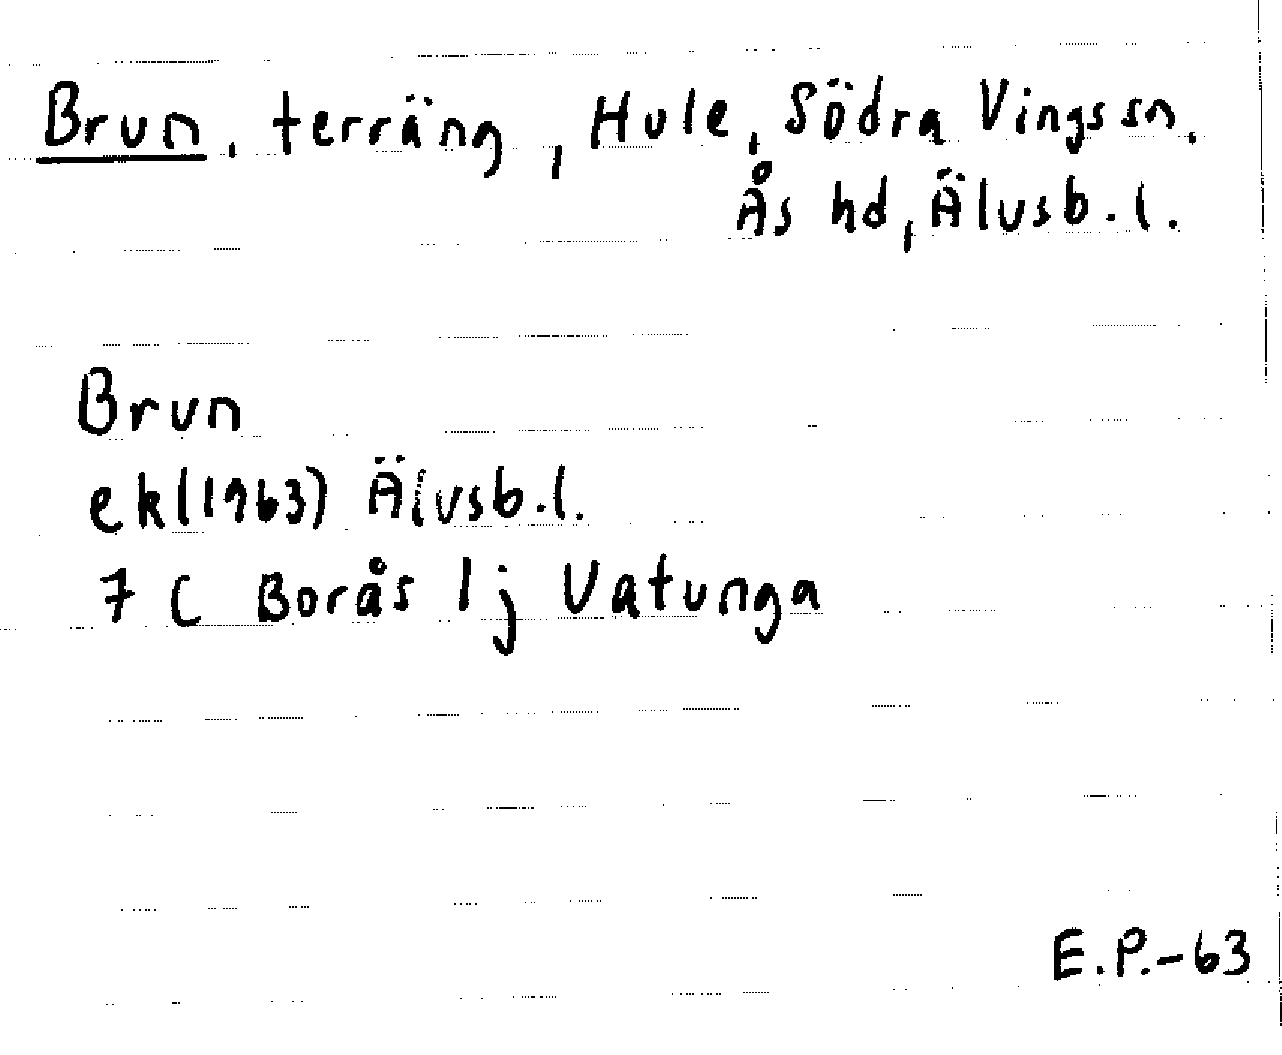 Brun, terräng, Hule, Södra Vings sn,
Ås hd, Älvsb.l.
Brun
ek(1963) Älvsb.l.
7 C Borås 1 j Vatunga
E.P.-63